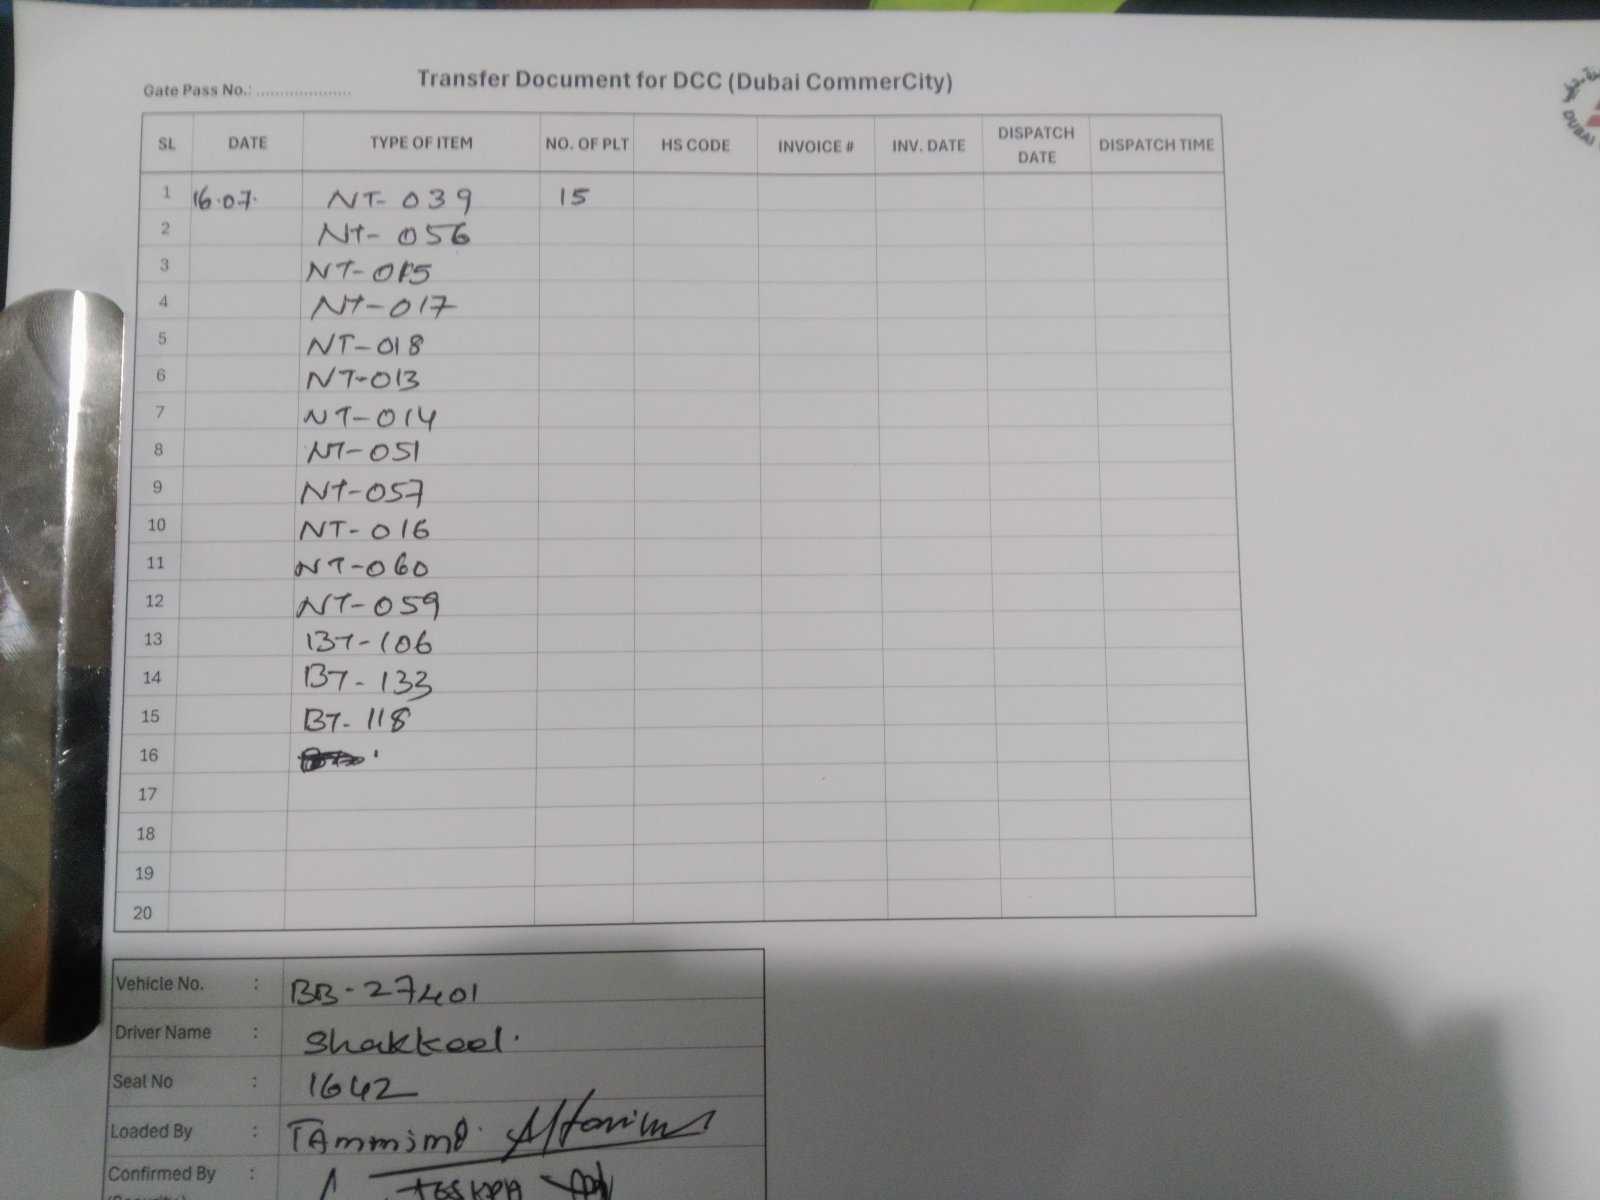 Gate Pass No.: ....................
Transfer Document for DCC (Dubai CommerCity)
SL DATE TYPE OF ITEM NO. OF PLT HS CODE INVOICE # INV. DATE DISPATCH DATE DISPATCH TIME
1 16.07. NT-039 15
2 NT-056
3 NT-015
4 NT-017
5 NT-018
6 NT-013
7 NT-014
8 NT-051
9 NT-057
10 NT-016
11 NT-060
12 NT-059
13 BT-106
14 BT-133
15 BT-118
16
17
18
19
20
Vehicle No. : BB-27401
Driver Name : Shakkeel.
Seal No : 1642
Loaded By :
Confirmed By :
(Security)
DUBAI